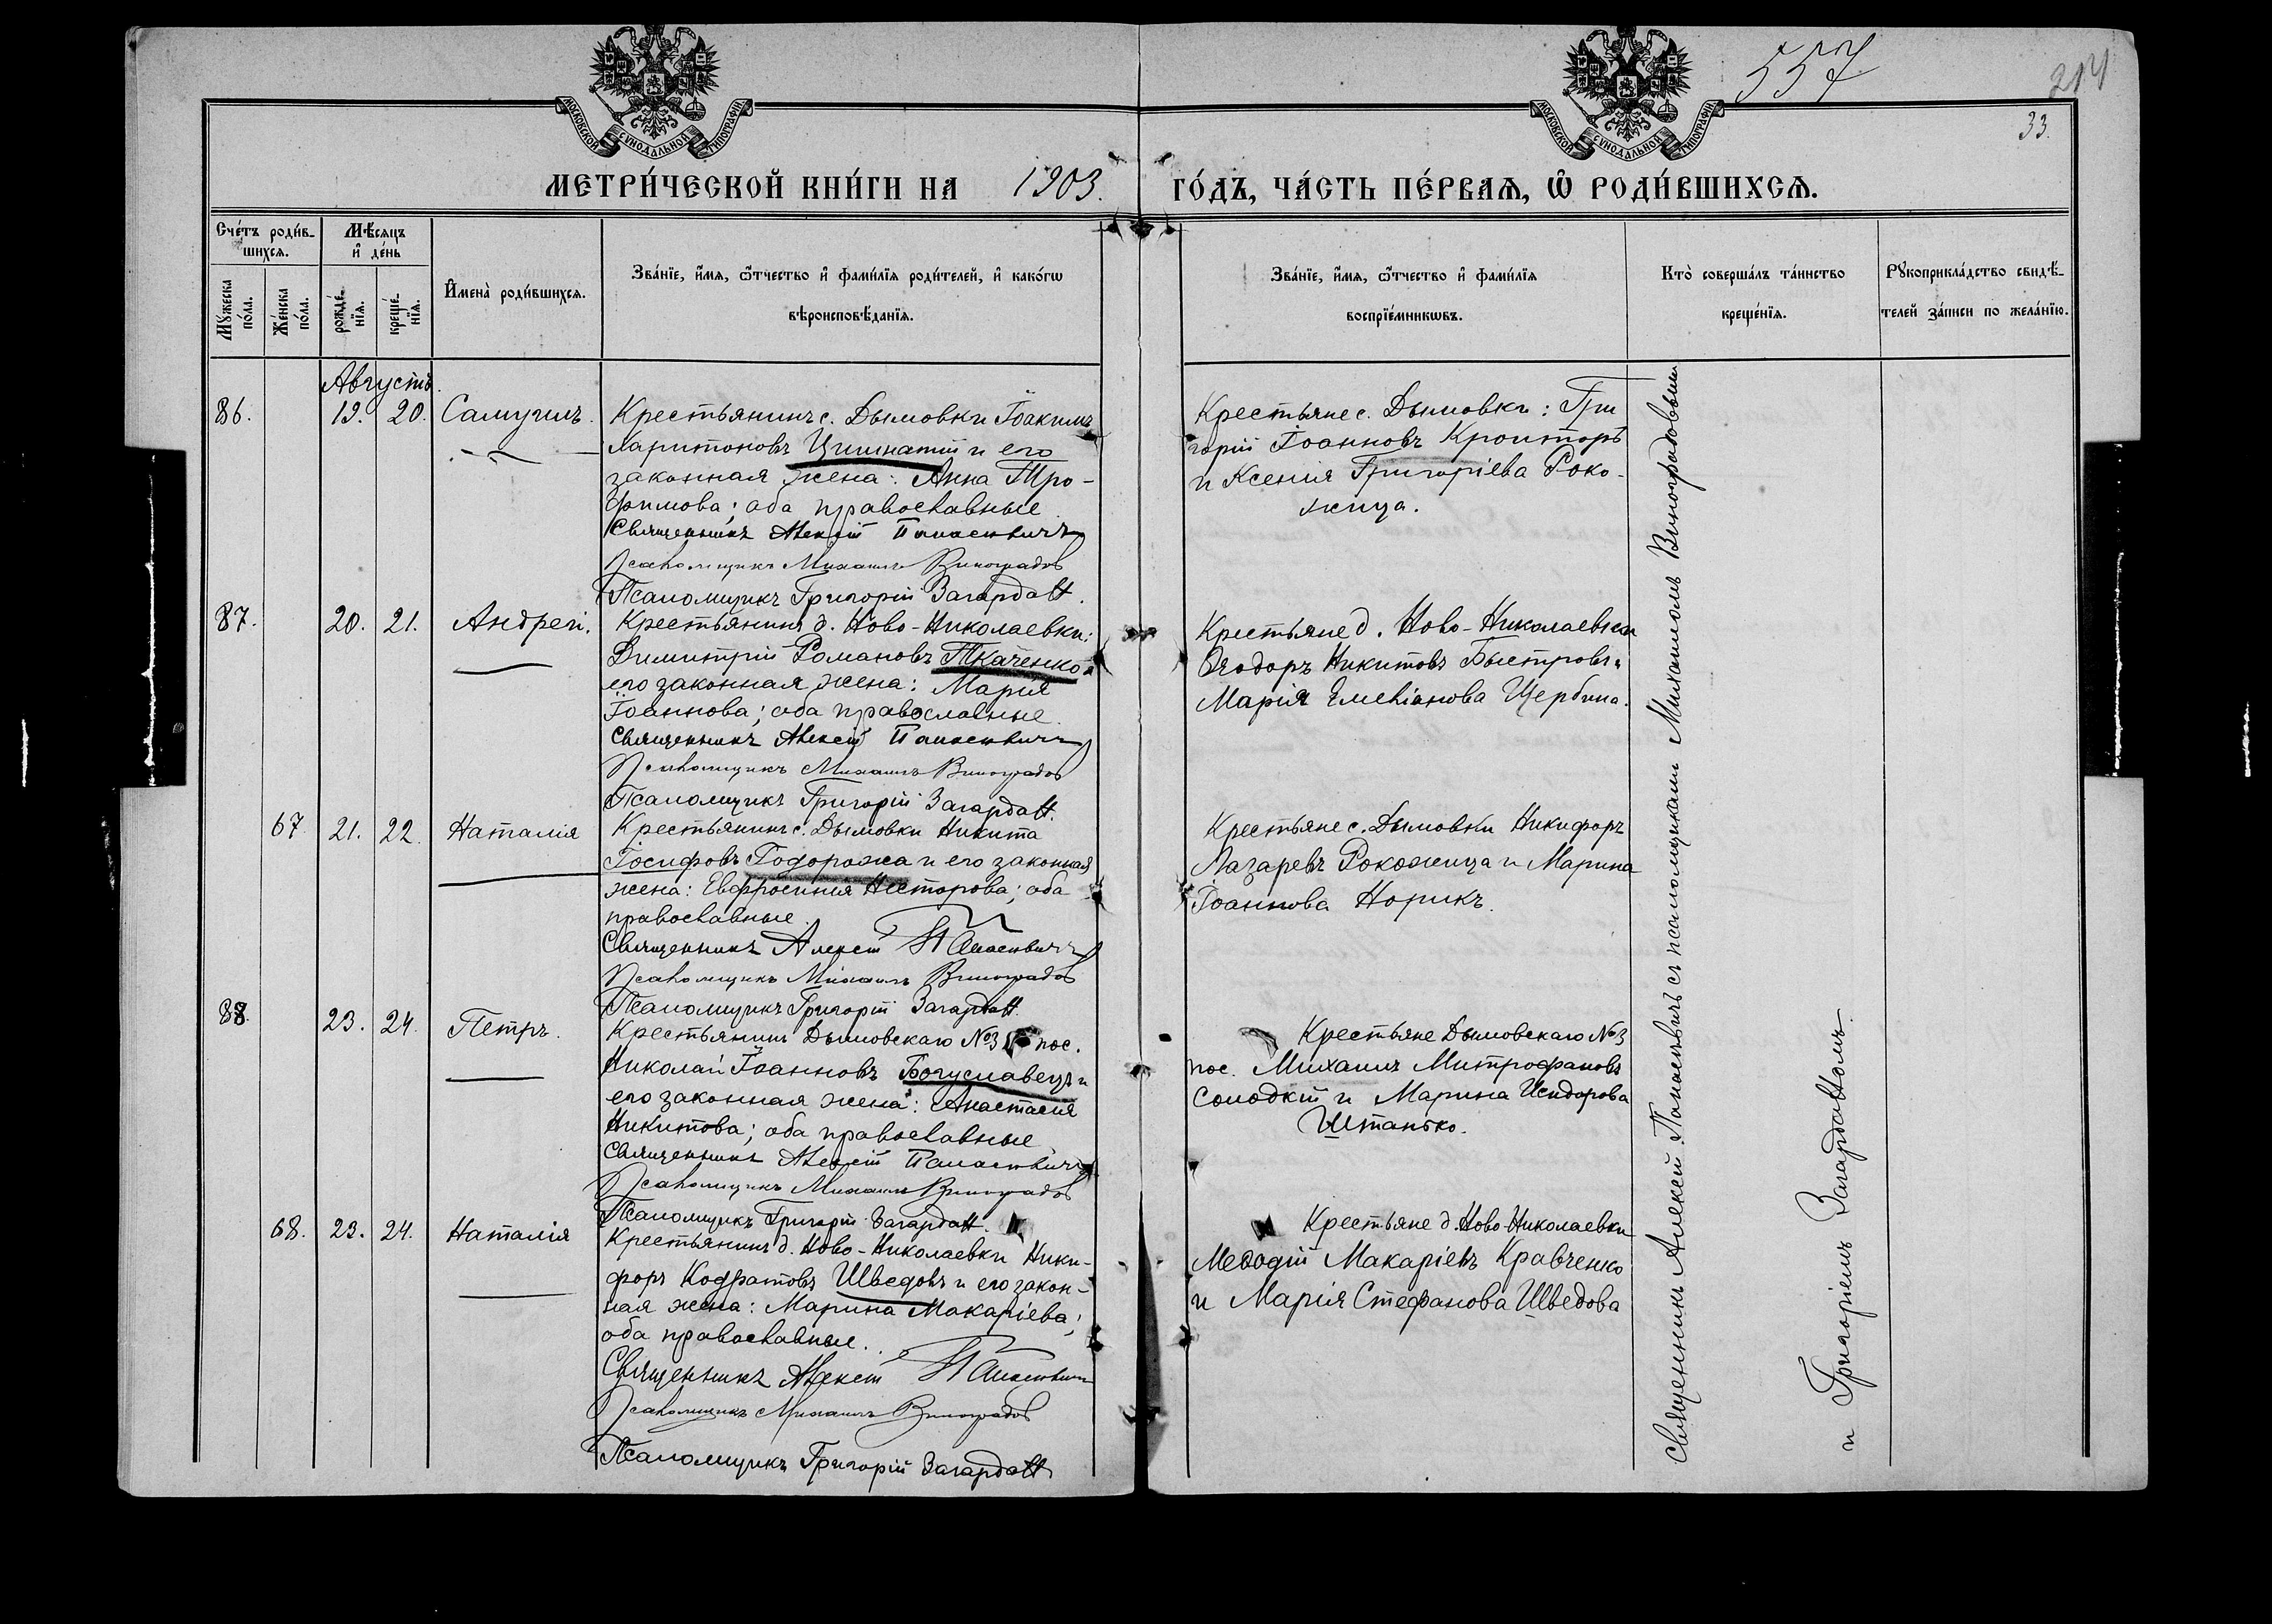 557
214
33.
МОСКОВСКОЙ СѴНОДАЛЬНОЙ ТИПОГРАФІИ
МОСКОВСКОЙ СѴНОДАЛЬНОЙ ТИПОГРАФІИ
МЕТРИ́ЧЕСКОЙ КНИ́ГИ НА 1903. ГО́ДЪ, ЧА́СТЬ ПЕ́РВАѦ, Ѡ҆ РОДИ́ВШИХСѦ.
Сче́тъ роди́в-
шихсѧ.
Мꙋ́жеска по́ла.
Же́нска по́ла.
Мѣ́сѧцъ
и҆ де́нь
рожде́-
нїѧ.
креще́-
нїѧ.
И҆мена̀ роди́вшихсѧ.
Зва́нїе, и҆́мѧ, ѻ҆́тчество и҆ фами́лїѧ роди́телей, и҆ како́гѡ
вѣроисповѣ́данїѧ.
Зва́нїе, и҆́мѧ, ѻ҆́тчество и҆ фами́лїѧ
воспрїе́мникѡвъ.
Кто̀ соверша́лъ та́инство
креще́нїѧ.
Рꙋкоприкла́дство свидѣ́-
телей за́писи по жела́нїю.
Августъ.
86. 19. 20. Самуилъ.
Крестьянинъ с. Дымовки Іоакимъ
Харитоновъ и его
законная жена: Анна Тро-
фимова; оба православные.
Священникъ Алексій Панасевичъ
Псаломщикъ Михаилъ Виноградовъ
Псаломщикъ Григорій
Крестьяне с. Дымовки: Гри
горій Іоанновъ Кройторъ
и Ксенія Григоріева Роко-
жица.
87. 20. 21. Андрей.
Крестьянинъ д. Ново-Николаевки:
Димитрій Романовъ Ткаченко и
его законная жена: Марія
Іоаннова; оба православные.
Священникъ Алексій Панасевичъ
Псаломщикъ Михаилъ Виноградовъ
Псаломщикъ Григорій
Крестьяне д. Ново-Николаевки
Ѳеодоръ Никитовъ Быстровъ и
Марія Емеліанова Щербина.
67 21. 22. Наталія
Крестьянинъ с. Дымовки Никита
Іосифовъ Тодорожа и его законная
жена: Евфросинія Несторова; оба
православные.
Священникъ Алексій Панасевичъ
Псаломщикъ Михаилъ Виноградовъ
Псаломщикъ Григорій
Крестьяне с. Дымовки Никифоръ
Лазаревъ Рокожица и Марина
Іоаннова Норикъ.
88. 23. 24. Петръ.
Крестьянинъ Дымовскаго №3 пос.
Николай Іоанновъ Богуславецъ и
его законная жена: Анастасія
Никитова; оба православные
Священникъ Алексій Панасевичъ
Псаломщикъ Михаилъ Виноградовъ
Псаломщикъ Григорій
Крестьяне Дымовскаго №3
пос. Михаилъ Митрофановъ
Солодкій и Марина Исидорова
Штанько.
68. 23. 24. Наталія
Крестьянинъ д. Ново-Николаевки Ники-
форъ Кодратовъ Шведовъ и его закон-
ная жена: Марина Макаріева;
оба православные.
Священникъ Алексій Панасевичъ
Псаломщикъ Михаилъ Виноградовъ
Псаломщикъ Григорій
Крестьяне д. Ново-Николаевки
Меѳодій Макаріевъ Кравченко
и Марія Стефанова Шведова
Священникъ Алексій Панасевичъ съ псаломщиками Михаиломъ Виноградовымъ
и Григоріемъ